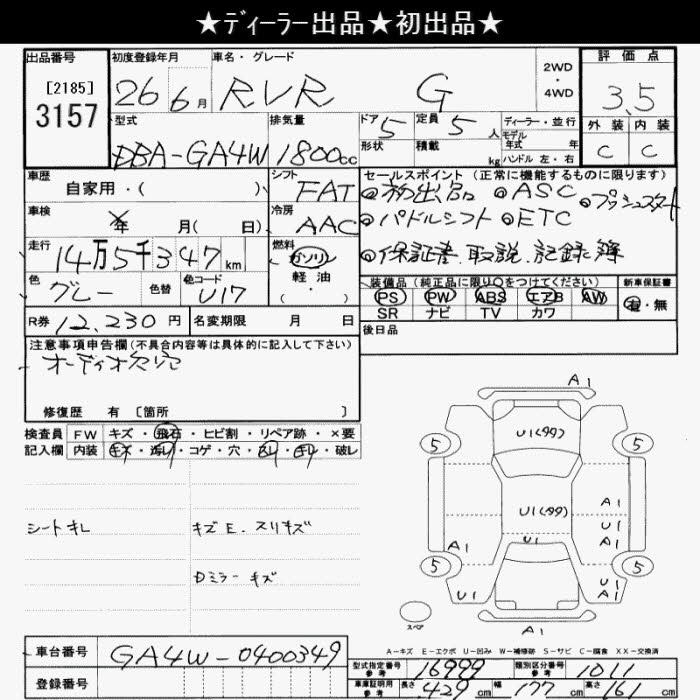 ★ディーラー出品★初出品★
出品番号 初度登録年月 車名・グレード 2WD・4WD 評価点
[2185] 3157 26年6月 RVR G 3.5
型式 排気量 ドア 5 定員 5人 ディーラー・並行 外装 内装
DBA-GA4W 1800cc 形状 積載 kg モデル年式 年 ハンドル 左・右 C C
車歴 自家用・( ) シフト FAT セールスポイント (正常に機能するものに限ります)
◎初出品 ◎ASC ◎プッシュスタート
車検 年 月( 日) 冷房 AAC ◎パドルシフト ◎ETC
走行 14万5千347km 燃料 ガソリン 軽油 ( ) ◎保証書、取説、記録簿
色 グレー 色替 色コード U17
装備品 (純正品に限り○をつけてください) 新車保証書
PS PW ABS エアB AW 有・無
SR ナビ TV カワ
R券 12,230円 名変期限 月 日 後日品
注意事項申告欄(不具合内容等は具体的に記入して下さい)
オーディオ欠品
修復歴 有 [箇所 ]
検査員 FW キズ・飛石・ヒビ割・リペア跡・×要
記入欄 内装 キズ・汚レ・コゲ・穴・スレ・キレ・破レ
シートキレ キズE.スリキズ
Dミラーキズ
A1
5 U1(99) 5
U1(99) A1
U1 U1
A1 A1
5 5
U1 U1
A1
スペア A1
A-キズ E-エクボ U-凹み W-補修跡 S-サビ C-腐食 XX-交換済
車台番号 GA4W-0400349
型式指定番号 参考 16999 類別区分番号 参考 1011
登録番号 車庫証明用 参考 長さ 429cm 幅 177cm 高さ 161cm